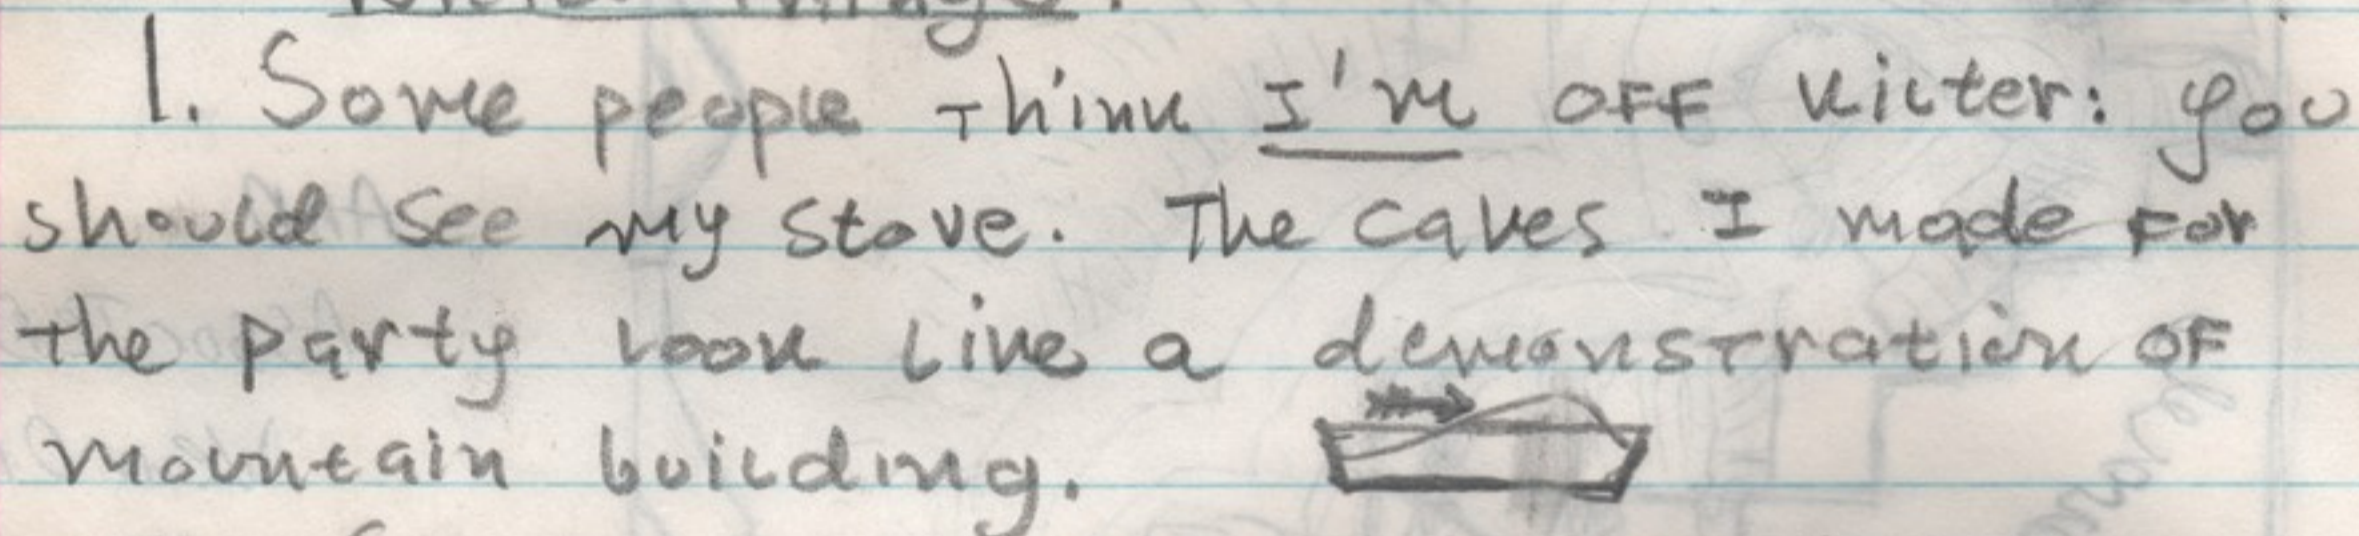 1. Some people think I'm OFF kilter: you
should see my stove. The cakes I made For
the party look like a demonstration OF
mountain building.